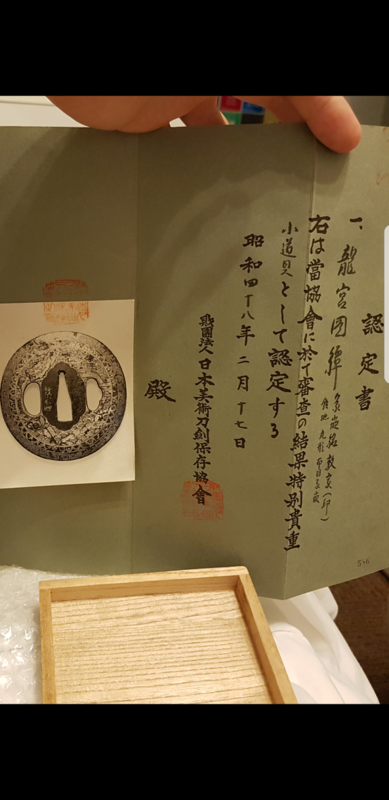 認定書
一、龍宮図鐔 象嵌銘 敦寅(印)
角地 丸形
右は當協會に於て審査の結果特別貴重
小道具として認定する
昭和四十八年二月十七日
財團法人日本美術刀劍保存協會
殿
5-6